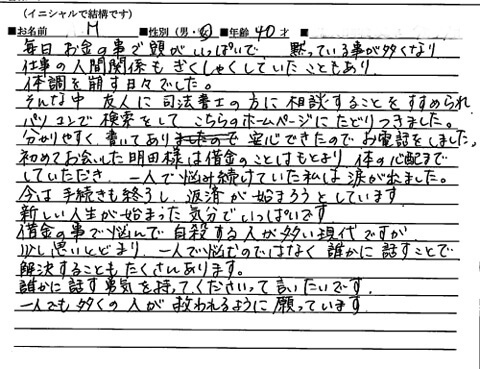 （イニシャルで結構です）
■お名前 M ■性別（男・女）■年齢 40 才 ■
毎日 お金の事で頭がいっぱいで 黙っている事が多くなり
仕事の人間関係も ぎくしゃくしていたこともあり
体調を崩す日々でした。
そんな中 友人に司法書士の方に相談することをすすめられ
パソコンで検索をして こちらのホームページにたどりつきました。
分かりやすく書いてありましたので 安心できたのでお電話をしました。
初めてお会いした明田様は借金のことはもとより 体の心配まで
していただき 一人で悩み続けていた私は涙が出ました。
今は手続きも終了し 返済が始まろうとしています
新しい人生が始まった気分でいっぱいです
借金の事で悩んで自殺する人が多い現代ですが
少し思いとどまり 一人で悩むのではなく 誰かに話すことで
解決することもたくさんあります。
誰かに話す勇気を持ってくださいって言いたいです
一人でも多くの人が救われるように願っています